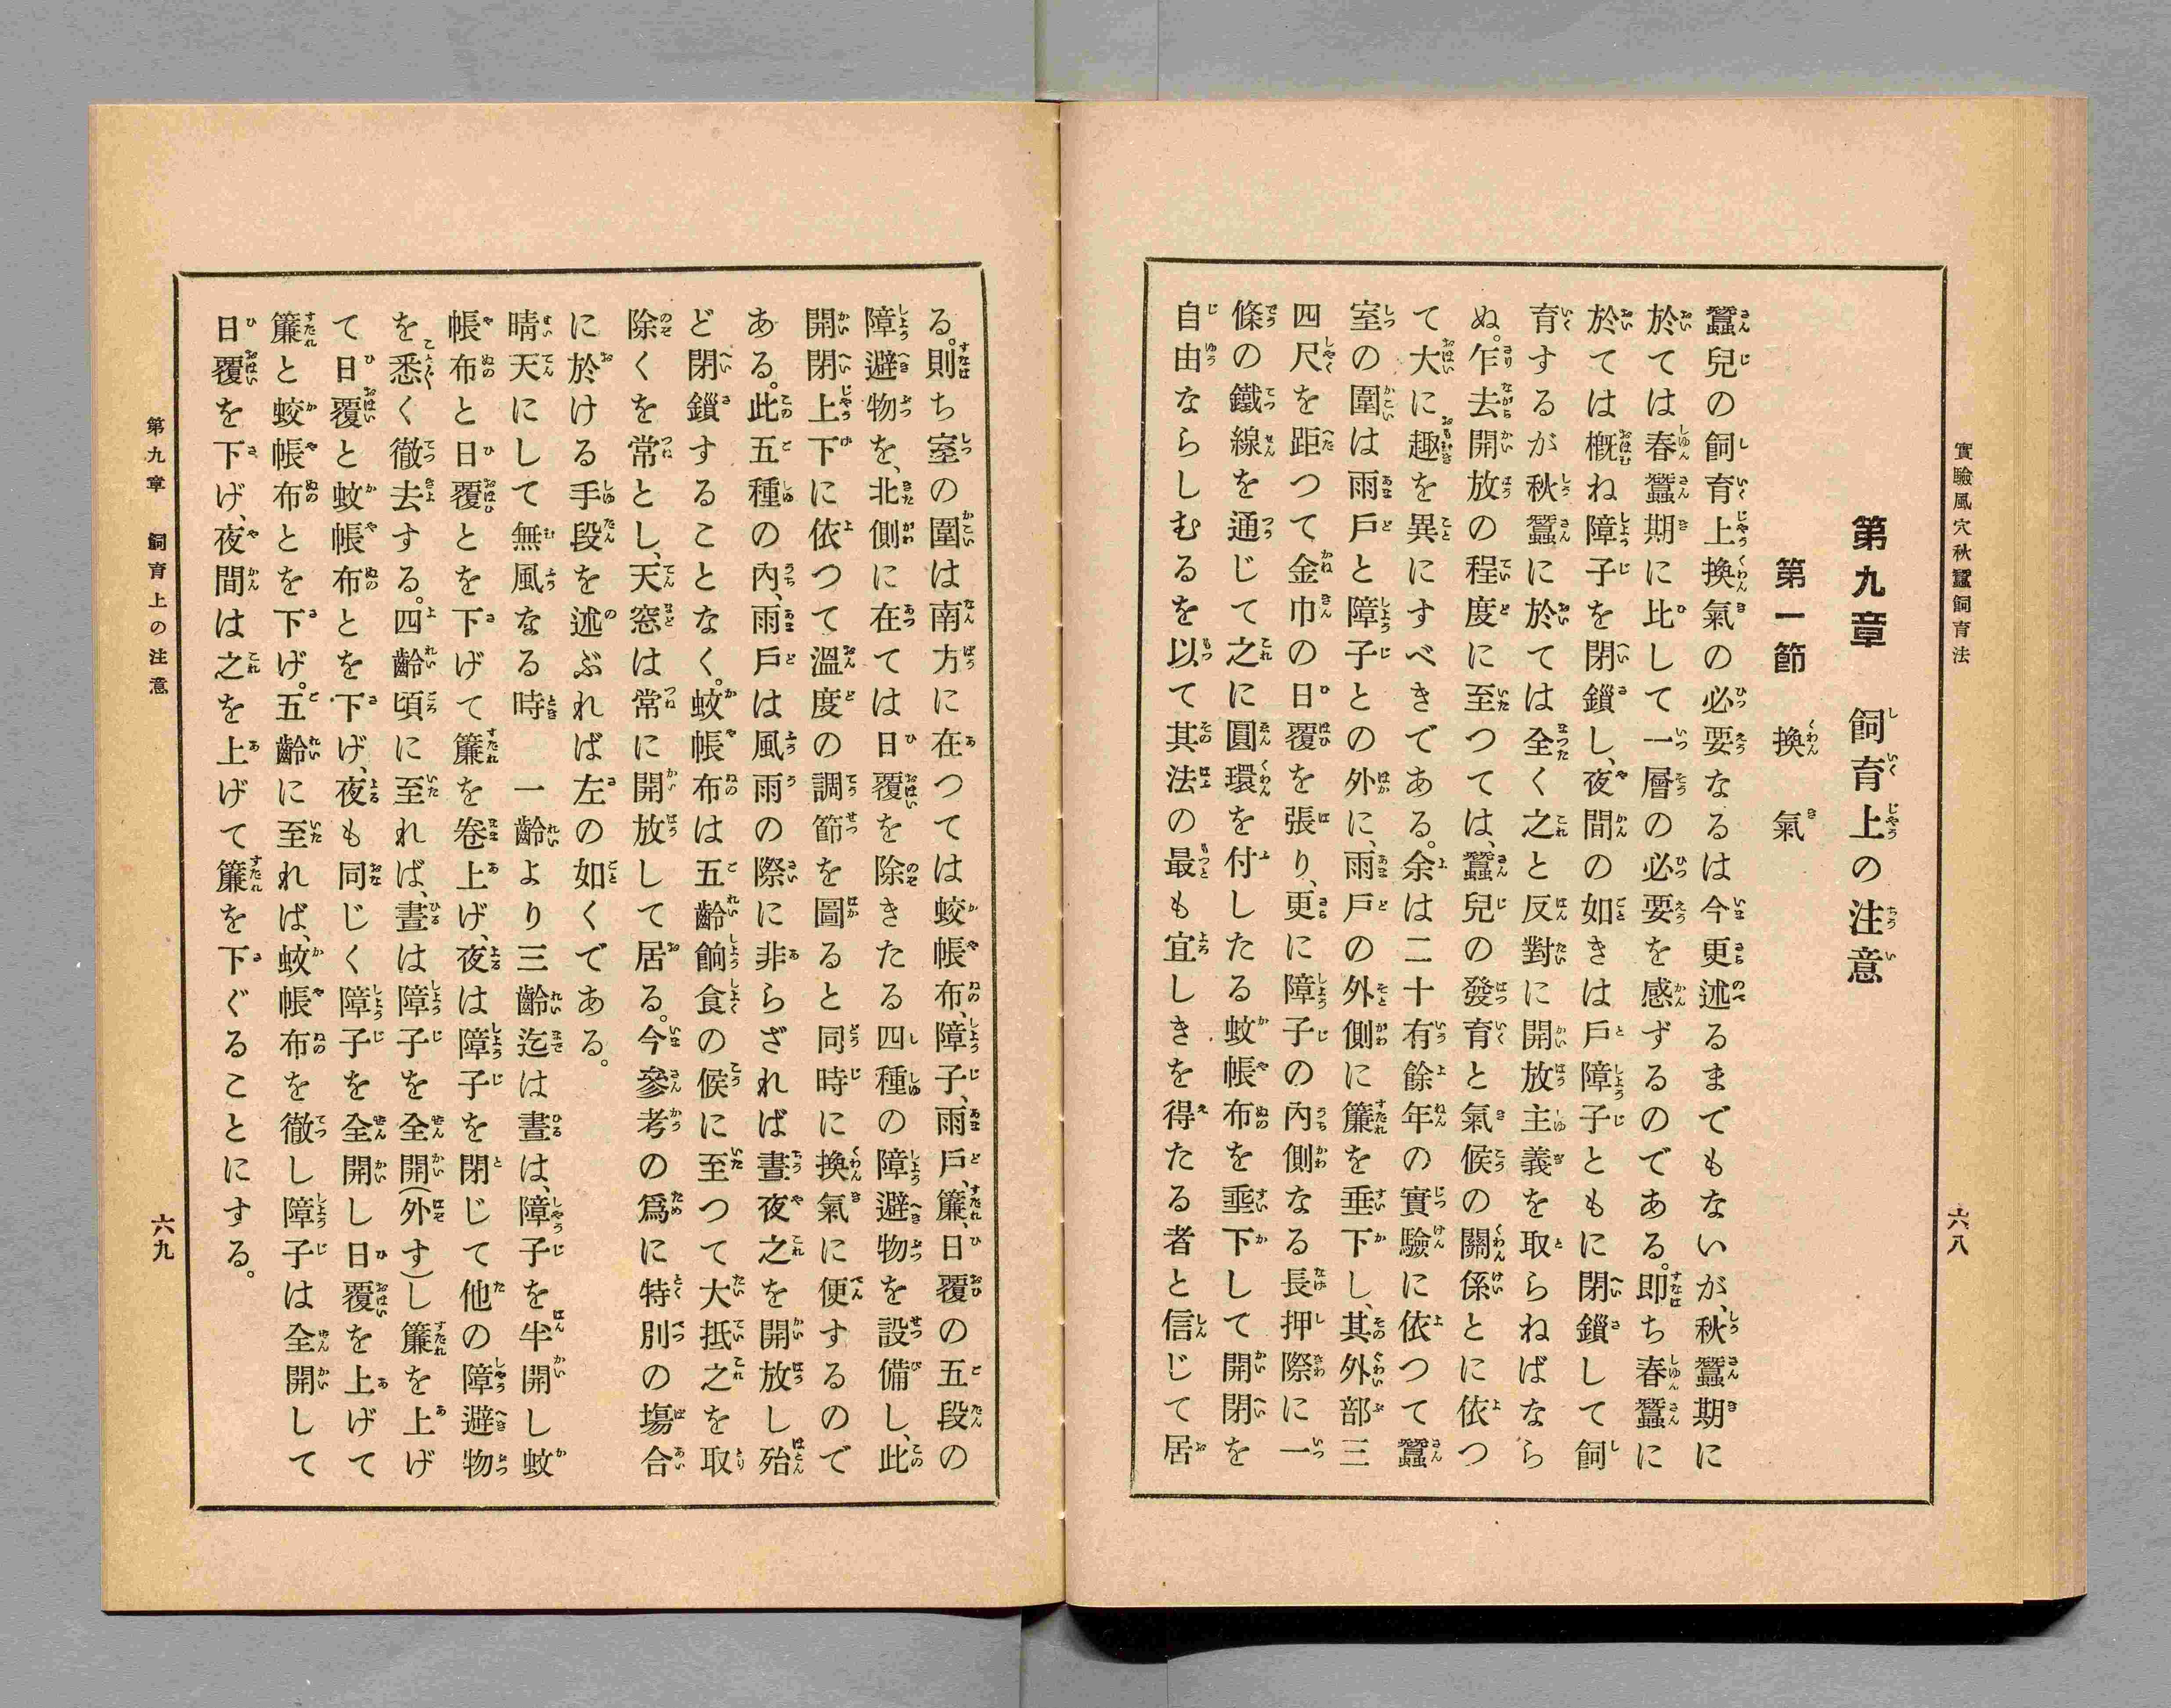 實驗風穴秋蠶飼育法
六八
第九章 飼育上の注意
第一節 換氣
蠶兒の飼育上換氣の必要なるは今更述るまでもないが、秋蠶期に
於ては春蠶期に比して一層の必要を感ずるのである。即ち春蠶に
於ては槪ね障子を閉鎖し、夜間の如きは戶障子ともに閉鎖して飼
育するが秋蠶に於ては全く之と反對に開放主義を取らねばなら
ぬ。乍去開放の程度に至つては、蠶兒の發育と氣候の關係とに依つ
て大に趣を異にすべきである。余は二十有餘年の實驗に依つて蠶
室の圍は雨戶と障子との外に、雨戶の外側に簾を垂下し、其外部三
四尺を距つて金巾の日覆を張り、更に障子の內側なる長押際に一
條の鐵線を通じて之に圓環を付したる蚊帳布を垂下して開閉を
自由ならしむるを以て其法の最も宜しきを得たる者と信じて居
る。則ち室の圍は南方に在つては蛟帳布、障子、雨戶、簾、日覆の五段の
障避物を、北側に在ては日覆を除きたる四種の障避物を設備し、此
開閉上下に依つて溫度の調節を圖ると同時に換氣に便するので
ある。此五種の內、雨戶は風雨の際に非らざれば晝夜之を開放し殆
ど閉鎖することなく。蚊帳布は五齡餉食の候に至つて大抵之を取
除くを常とし、天窓は常に開放して居る。今參考の爲に特別の塲合
に於ける手段を述ぶれば左の如くである。
晴天にして無風なる時 一齡より三齡迄は晝は、障子を半開し蚊
帳布と日覆とを下げて簾を卷上げ、夜は障子を閉じて他の障避物
を悉く徹去する。四齡頃に至れば、晝は障子を全開(外す)し簾を上げ
て日覆と蚊帳布とを下げ、夜も同じく障子を全開し日覆を上げて
簾と蛟帳布とを下げ。五齡に至れば、蚊帳布を徹し障子は全開して
日覆を下げ、夜間は之を上げて簾を下ぐることにする。
第九章 飼育上の注意
六九